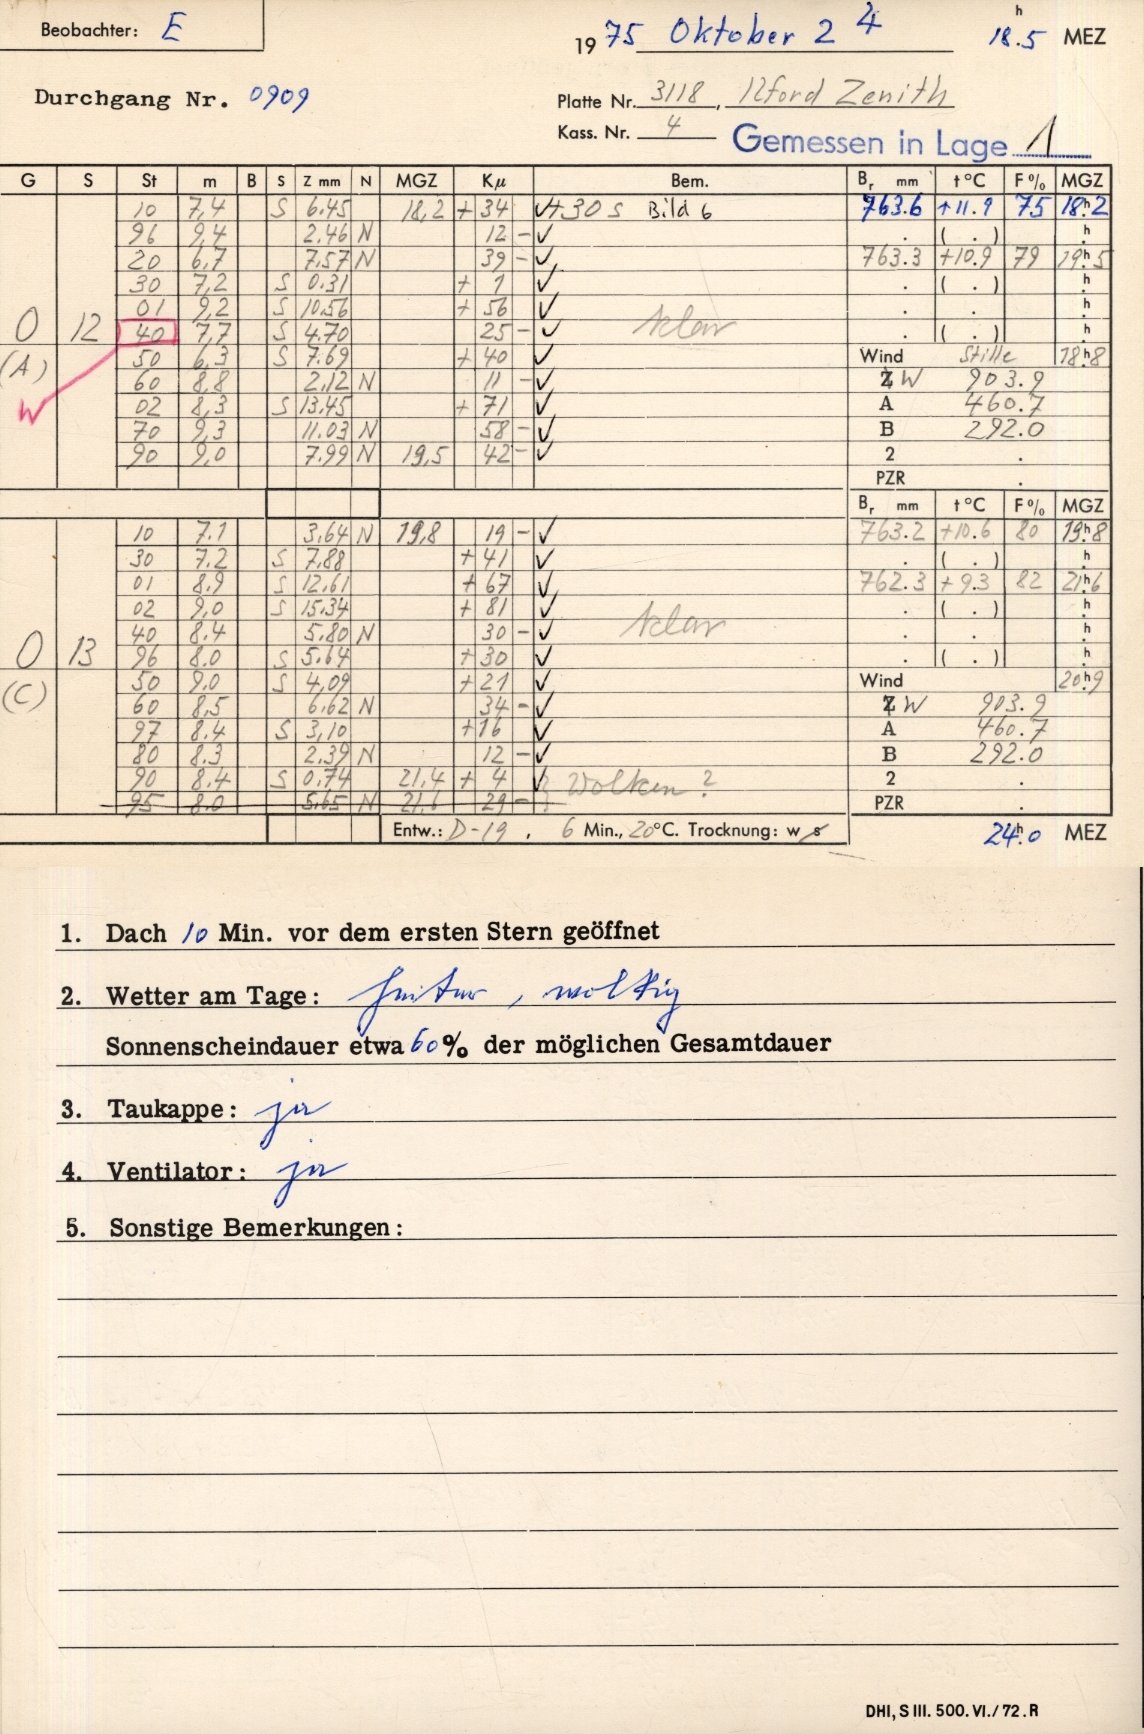 Beobachter: E
1975 Oktober 24 18.5 h MEZ
Durchgang Nr. 0909
Platte Nr. 3118, Ilford Zenith
Kass. Nr. 4 Gemessen in Lage 1
G S St m B S Z mm N MGZ Kµ Bem. Br mm t°C F% MGZ
10 7,4 S 6.45 18,2 + 34 ✓ +30s Bild 6 763.6 +11.9 75 18h2
96 9,4 2.46 N 12 - ✓ . ( . ) h
20 6,7 7.57 N 39 - ✓ 763.3 +10.9 79 19h5
30 7,2 S 0.31 + 1 ✓ . ( . ) h
01 9,2 S 10.56 + 56 ✓ . . h
0 12 40 7,7 S 4.70 25 - ✓ klar . ( . ) h
(A) 50 6,3 S 7.69 + 40 ✓ Wind Stille 18h8
60 8,8 2,12 N 11 - ✓ W 903.9
W 02 8,3 S 13.45 + 71 ✓ A 460.7
70 9,3 11.03 N 58 - ✓ B 292.0
90 9,0 7.99 N 19,5 42 - ✓ 2 .
PZR .
Br mm t°C F% MGZ
10 7.1 3,64 N 19,8 19 - ✓ 763.2 +10.6 80 19h8
30 7.2 S 7,88 + 41 ✓ . ( . ) h
01 8.9 S 12,61 + 67 ✓ 762.3 +9.3 82 21h6
02 9,0 S 15,34 + 81 ✓ . ( . ) h
40 8.4 5,80 N 30 - ✓ klar . . h
0 13 96 8.0 S 5,64 + 30 ✓ . ( . ) h
(C) 50 9,0 S 4,09 + 21 ✓ Wind 20h9
60 8,5 6,62 N 34 - ✓ W 903.9
97 8.4 S 3,10 + 16 ✓ A 460.7
80 8.3 2.39 N 12 - ✓ B 292.0
90 8.4 S 0,74 21,4 + 4 ✓ Wolken? 2 .
95 8.0 5,65 N 21,6 29 - PZR .
Entw.: D-19, 6 Min., 20°C. Trocknung: w s 24h0 MEZ
1. Dach 10 Min. vor dem ersten Stern geöffnet
2. Wetter am Tage: heiter, wolkig
Sonnenscheindauer etwa 60% der möglichen Gesamtdauer
3. Taukappe: ja
4. Ventilator: ja
5. Sonstige Bemerkungen:
DHI, S III. 500. VI./72. R